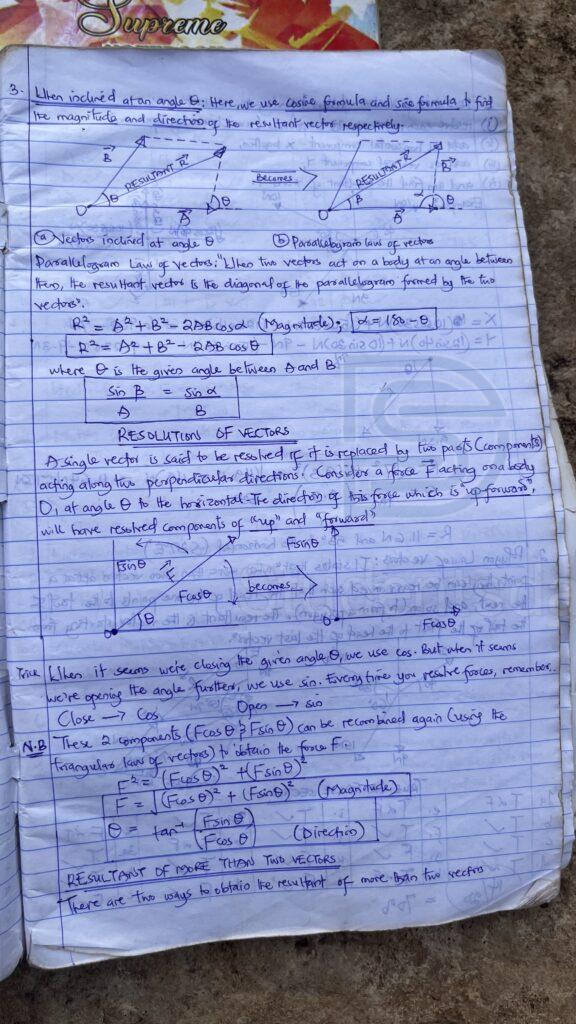 Supreme
3. When inclined at an angle θ: Here, we use cosine formula and sine formula to find
the magnitude and direction of the resultant vector respectively.
B⃗ RESULTANT R⃗ θ θ A⃗ O becomes RESULTANT R⃗ B⃗ β α θ A⃗ O
(a) Vectors inclined at angle θ (b) Parallelogram law of vectors
Parallelogram Law of vectors: "When two vectors act on a body at an angle between
them, the resultant vector is the diagonal of the parallelogram formed by the two
vectors".
R² = A² + B² - 2AB cos α (Magnitude); α = 180 - θ
R² = A² + B² - 2AB cos θ
where θ is the given angle between A and B
Sin β = Sin α
A B
RESOLUTION OF VECTORS
A single vector is said to be resolved if it is replaced by two parts (components)
acting along two perpendicular directions. Consider a force F⃗ acting on a body
O, at angle θ to the horizontal. The direction of this force which is "up forward",
will have resolved components of "up" and "forward"
Fsinθ F⃗ Fcosθ θ O becomes Fsinθ O Fcosθ
Trick When it seems we're closing the given angle θ, we use cos. But when it seems
we're opening the angle further, we use sin. Every time you resolve forces, remember,
Close → Cos Open → sin
N.B These 2 components (Fcosθ & Fsinθ) can be recombined again (using the
triangular law of vectors) to obtain the force F.
F² = (Fcosθ)² + (Fsinθ)²
F = √(Fcosθ)² + (Fsinθ)² (Magnitude)
θ = tan⁻¹ (Fsinθ / Fcosθ) (Direction)
RESULTANT OF MORE THAN TWO VECTORS
There are two ways to obtain the resultant of more than two vectors